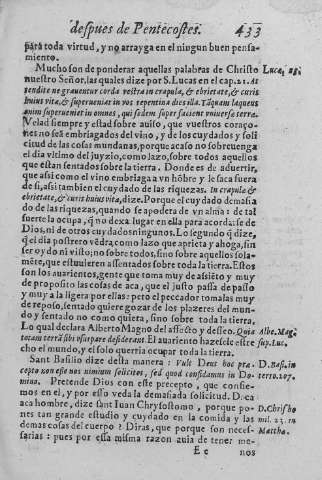 despues de Pentecostes. 433
para toda virtud, y no arrayga en el ningun buen pensa-
miento.
Mucho son de ponderar aquellas palabras de Christo Luca, 21.
nuestro Señor, las quales dize por S. Lucas en el cap. 21. At
tendite ne grauentur corda vestra in crapula, & ebrietate, & curis
huius vitæ, & superueniat in vos repentina dies illa. Tāquam laqueus
enim superueniet in omnes, qui sedent super faciem vniuersæ terræ.
Velad siempre y estad sobre auiso, que vuestros coraço-
nes no seā embriagados del vino, y de los cuydados y soli
citud de las cosas mundanas, porque acaso no sobreuenga
el dia vltimo del juyzio, como lazo, sobre todos aquellos
que estan sentados sobre la tierra. Donde es de aduertir,
que assi como el vino embriaga a vn hōbre y le saca fuera
de si, assi tambien el cuydado de las riquezas. In crapula, &
ebrietate, & curis huius vitæ, dize. Porque el cuydado demasia
do de las riquezas, quando se apodera de vn alma: de tal
suerte la ocupa, q̄ no dexa lugar en ella para acordarse de
Dios, ni de otros cuydados ningunos. Lo segundo q̄ dize, q̄
el dia postrero vēdra, como lazo que aprieta y ahoga, sin
ser oydo ni visto, no sobre todos, sino sobre aquellos sola-
mēte, que estuuieren assentados sobre toda la tierra. Estos
son los auarientos, gente que toma muy de assiēto y muy
de proposito las cosas de aca, que el justo passa de passo
y muy a la ligera por ellas: pero el peccador tomalas muy
de reposo, sentado quiere gozar de los plazeres del mun-
do y sentado no como quiera, sino sobre toda la tierra.
Lo qual declara Alberto Magno del affecto y desseo. Quia Albe. Mag.
totam terrā sibi vsurpare desiderant El auariento hazesele este sup. Luc.
cho el mundo, y el solo querria ocupar toda la tierra.
Sant Basilio dize desta manera: Vult Deus hoc præ- D. Basi. in
cepto non esse nos nimium solicitos, sed quod considamus in Do- terro. 207.
mino. Pretende Dios con este precepto, que confie-
mos en el, y por esso veda la demasiada solicitud. De
aca hombre, dize sant Iuan Chrysostomo, porque po- D. Chrisho
nes tan grande estudio y cuydado en la comida y las mil. 23. in
demas cosas del cuerpo? Diras, que porque son neces- Matthæ.
sarias: pues por essa misma razon auia de tener me-
E e nos